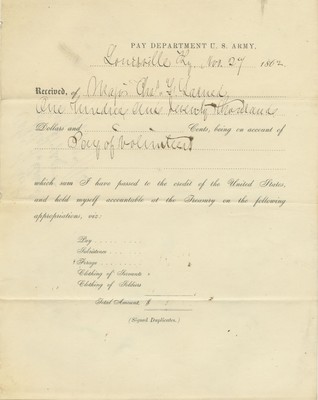 PAY DEPARTMENT U. S. ARMY,
Louisville Ky, Nov. 27 1862.
Received, of Major Chs. T. Larned,
One Hundred and Seventy Thousand
Dollars and Cents, being on account of
Pay of Volunteers
which sum I have passed to the credit of the United States,
and hold myself accountable at the Treasury on the following
appropriations, viz:
Pay
Subsistence
Forage
Clothing of Servants
Clothing of Soldiers
Total Amount, $
(Signed Duplicates.)